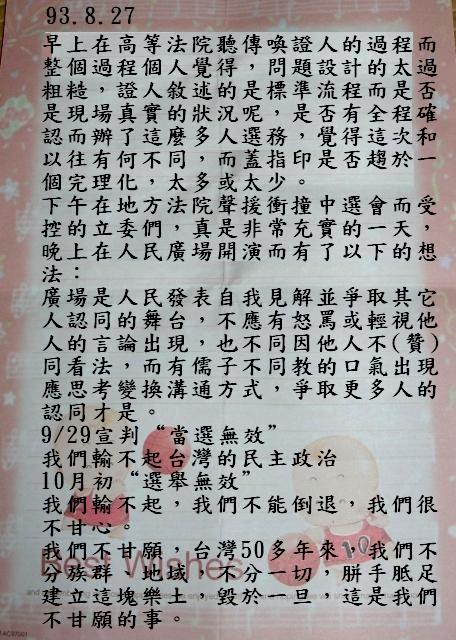 93.8.27
早上在高等法院聽傳喚證人的過程而
整個過程個人覺得，問題設計的太過
粗糙，證人敘述的，是標準流程是否
是現場真實的狀況呢，是否有全程確
認而辦了這麼多人選務，覺得這次和
以往有何不同，而蓋指印是否趨於一
個完理化，太多或太少。
下午在地方法院聲援衝撞中選會而受
控的立委們，真是非常充實的一天，
晚上在人民廣場開演而有了以下的想
法：
廣場是人民發表自我見解並爭取其它
人認同的舞台，不應有怒罵或輕視他
人的言論出現，也不同因他人不(贊)
同看法，而有儒子不同教的口氣出現
應思考變換溝通方式，爭取更多人的
認同才是。
9/29宣判“當選無效”
我們輸不起台灣的民主政治
10月初“選舉無效”
我們輸不起，我們不能倒退，我們很
不甘心。
我們不甘願，台灣50多年來，我們不
分族群、地域，不分一切，胼手胝足
建立這塊樂土，毀於一旦，這是我們
不甘願的事。
Best Wishes